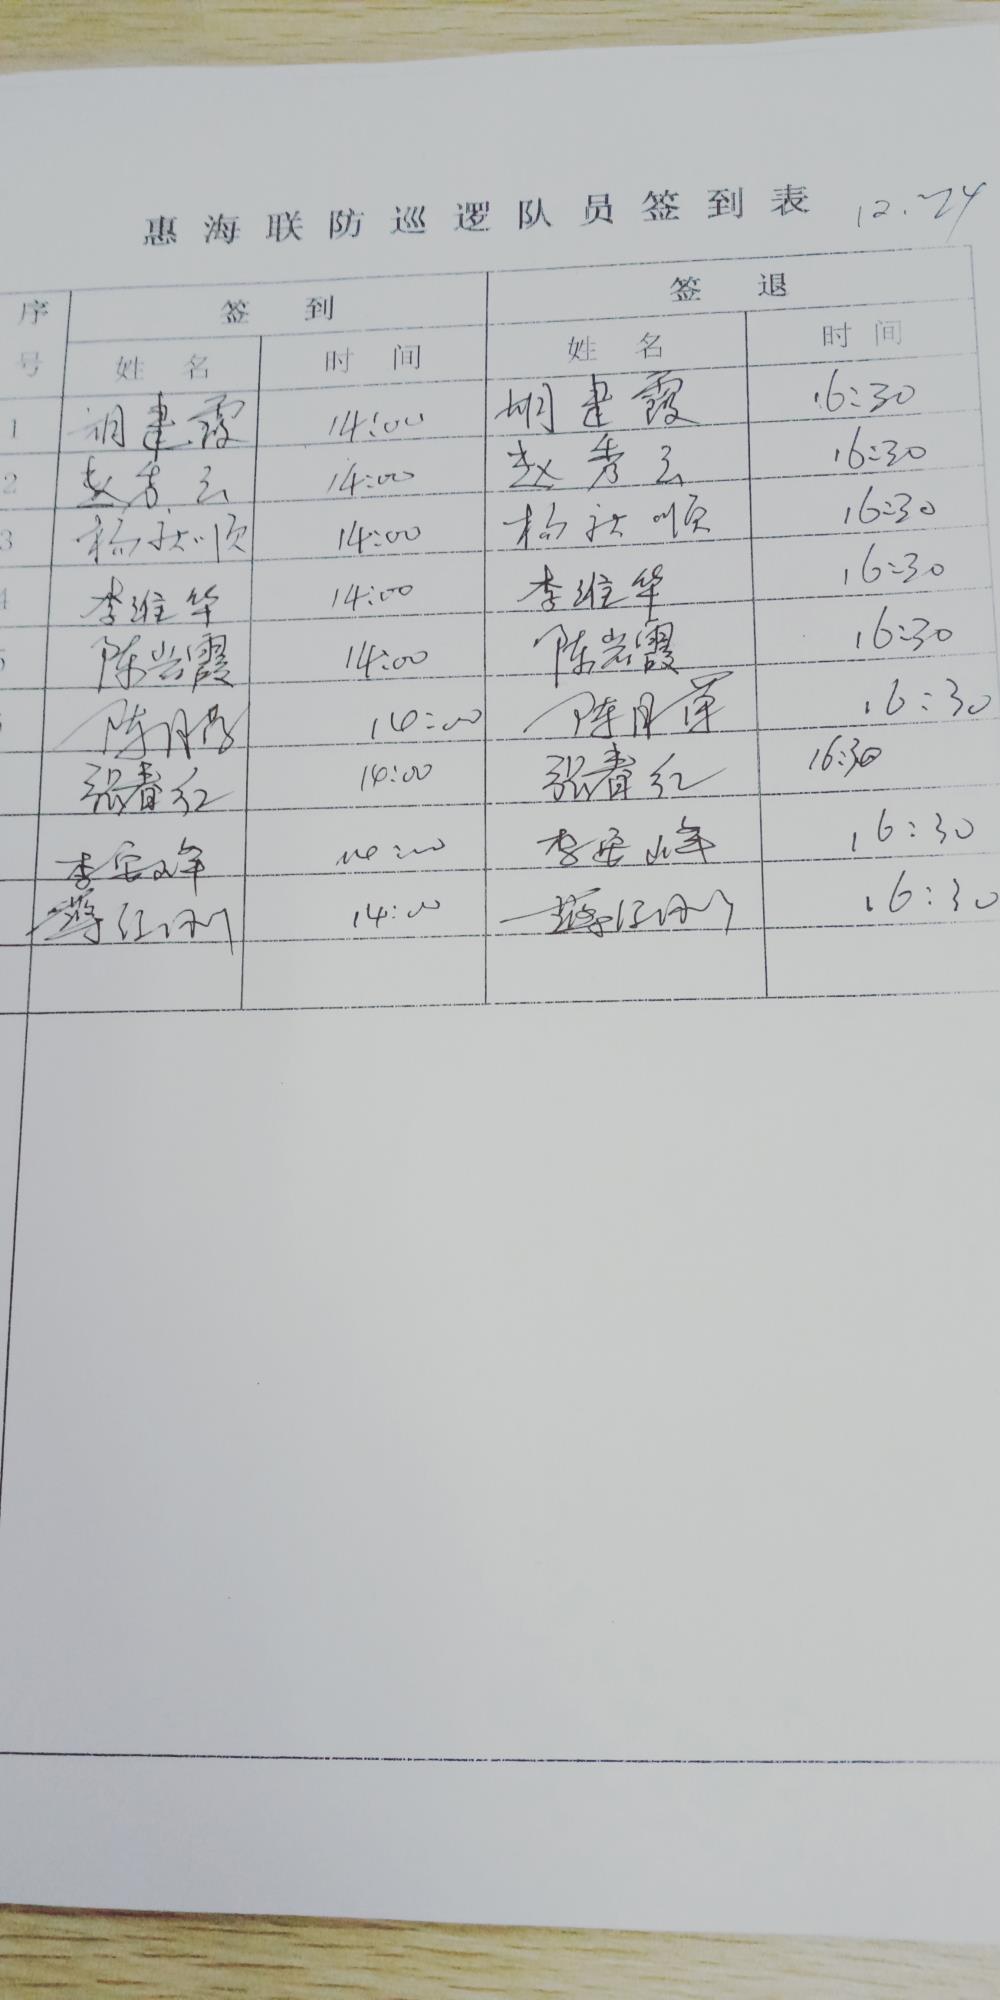 惠海联防巡逻队员签到表 12.24
序号 签到 签退
姓名 时间 姓名 时间
1 胡建霞 14:00 胡建霞 16:30
2 赵秀云 14:00 赵秀云 16:30
3 杨秋顺 14:00 杨秋顺 16:30
4 李维华 14:00 李维华 16:30
5 陈岩霞 14:00 陈岩霞 16:30
陈月萍 14:00 陈月萍 16:30
张春红 14:00 张春红 16:30
李安峰 14:00 李安峰 16:30
14:00 16:30